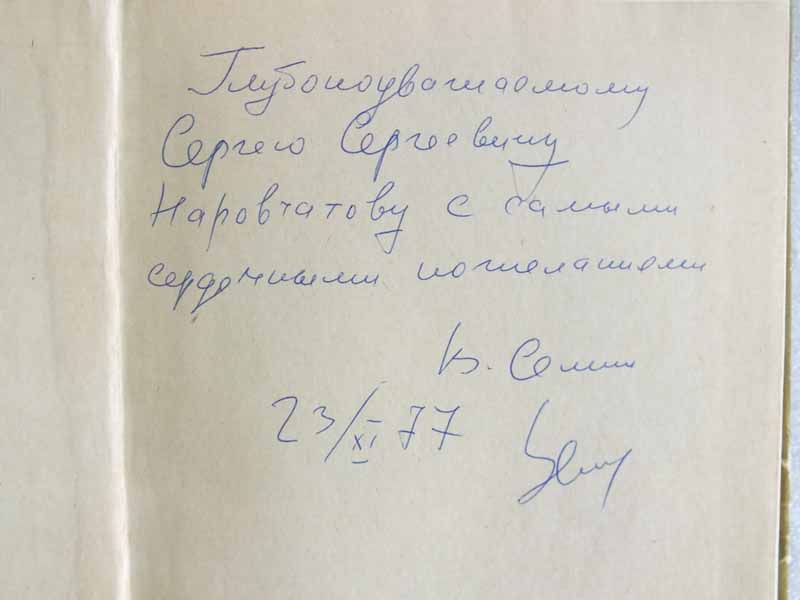 Глубокоуважаемому
Сергею Сергеевичу
Наровчатову с самыми
сердечными пожеланиями
В. Семин
23/XI 77